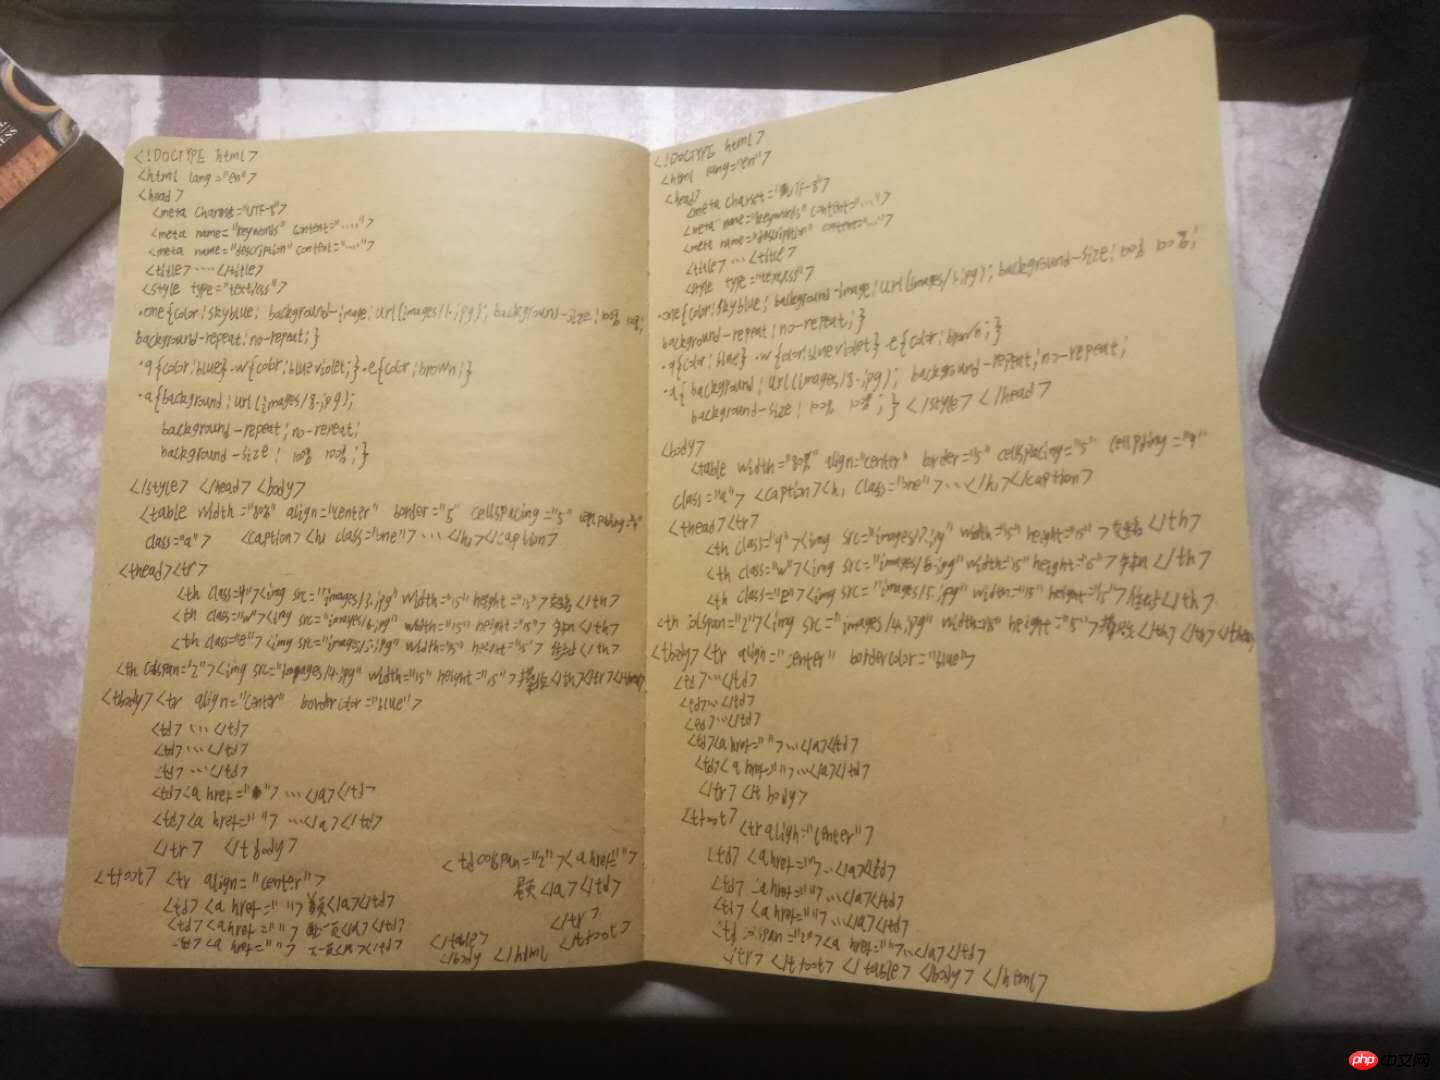 <!DOCTYPE html>
<html lang="en">
<head>
<meta charset="UTF-8">
<meta name="keywords" content="....">
<meta name="description" content="....">
<title>....</title>
<style type="text/css">
.one{color:skyblue; background-image:url(images/1.jpg); background-size:100% 100%;
background-repeat:no-repeat;}
.q{color:blue}.w{color:blueviolet;}.e{color:brown;}
.a{background:url(images/8.jpg);
background-repeat:no-repeat;
background-size: 100% 100%;}
</style> </head> <body>
<table width="80%" align="center" border="5" cellspacing="5"
class="a"> <caption><h1 class="one">...</h1></caption>
<thead><tr>
<th class="q"><img src="images/3.jpg" width="15" height="15"></th>
<th class="w"><img src="images/6.jpg" width="15" height="15"></th>
<th class="e"><img src="images/ .jpg" width="15" height="15"></th>
<th colspan="2"><img src="images/4.jpg" width="15" height="15"></th></tr></thead>
<tbody><tr align="center" bordercolor="blue">
<td>...</td>
<td>...</td>
<td>...</td>
<td><a href=" ">...</a></td>
<td><a href=" ">...</a></td>
</tr> </tbody>
<tfoot> <tr align="center">
<td><a href=" ">首页</a></td>
<td><a href=" ">上一页</a></td>
<td><a href=" ">下一页</a></td>
<td colspan="2"><a href=" ">
尾页</a></td>
</tr>
</table> </tfoot>
</body </html
<!DOCTYPE html>
<html lang="en">
<head>
<meta charset="UTF-8">
<meta name="keywords" content="....">
<meta name="description" content="....">
<title>...</title>
<style type="text/css">
.one{color:skyblue; background-image:url(images/1.jpg); background-size:100% 100%;
background-repeat:no-repeat;}
.q{color:blue}.w{color:blueviolet}.e{color:brown;}
.a{background:url(images/8.jpg); background-repeat:no-repeat;
background-size: 100% 100%;}</style></head>
<body>
<table width="80%" align="center" border="5" cellspacing="5"
class="a"> <caption><h1 class="one">...</h1></caption>
<thead><tr>
<th class="q"><img src="images/ .jpg" width="15" height="15"></th>
<th class="w"><img src="images/6.jpg" width="15" height="15"></th>
<th class="e"><img src="images/5.jpg" width="15" height="15"></th>
<th colspan="2"><img src="images/4.jpg" width="15" height="15"></th></tr></thead>
<tbody><tr align="center" bordercolor="blue">
<td>...</td>
<td>...</td>
<td>...</td>
<td><a href=" ">...</a></td>
<td><a href=" ">...</a></td>
</tr></tbody>
<tfoot>
<tr align="center">
<td><a href=" ">...</a></td>
<td><a href=" ">...</a></td>
<td><a href=" ">...</a></td>
<td colspan="2"><a href=" ">...</a></td>
</tr></tfoot></table></body></html>
php 中文网